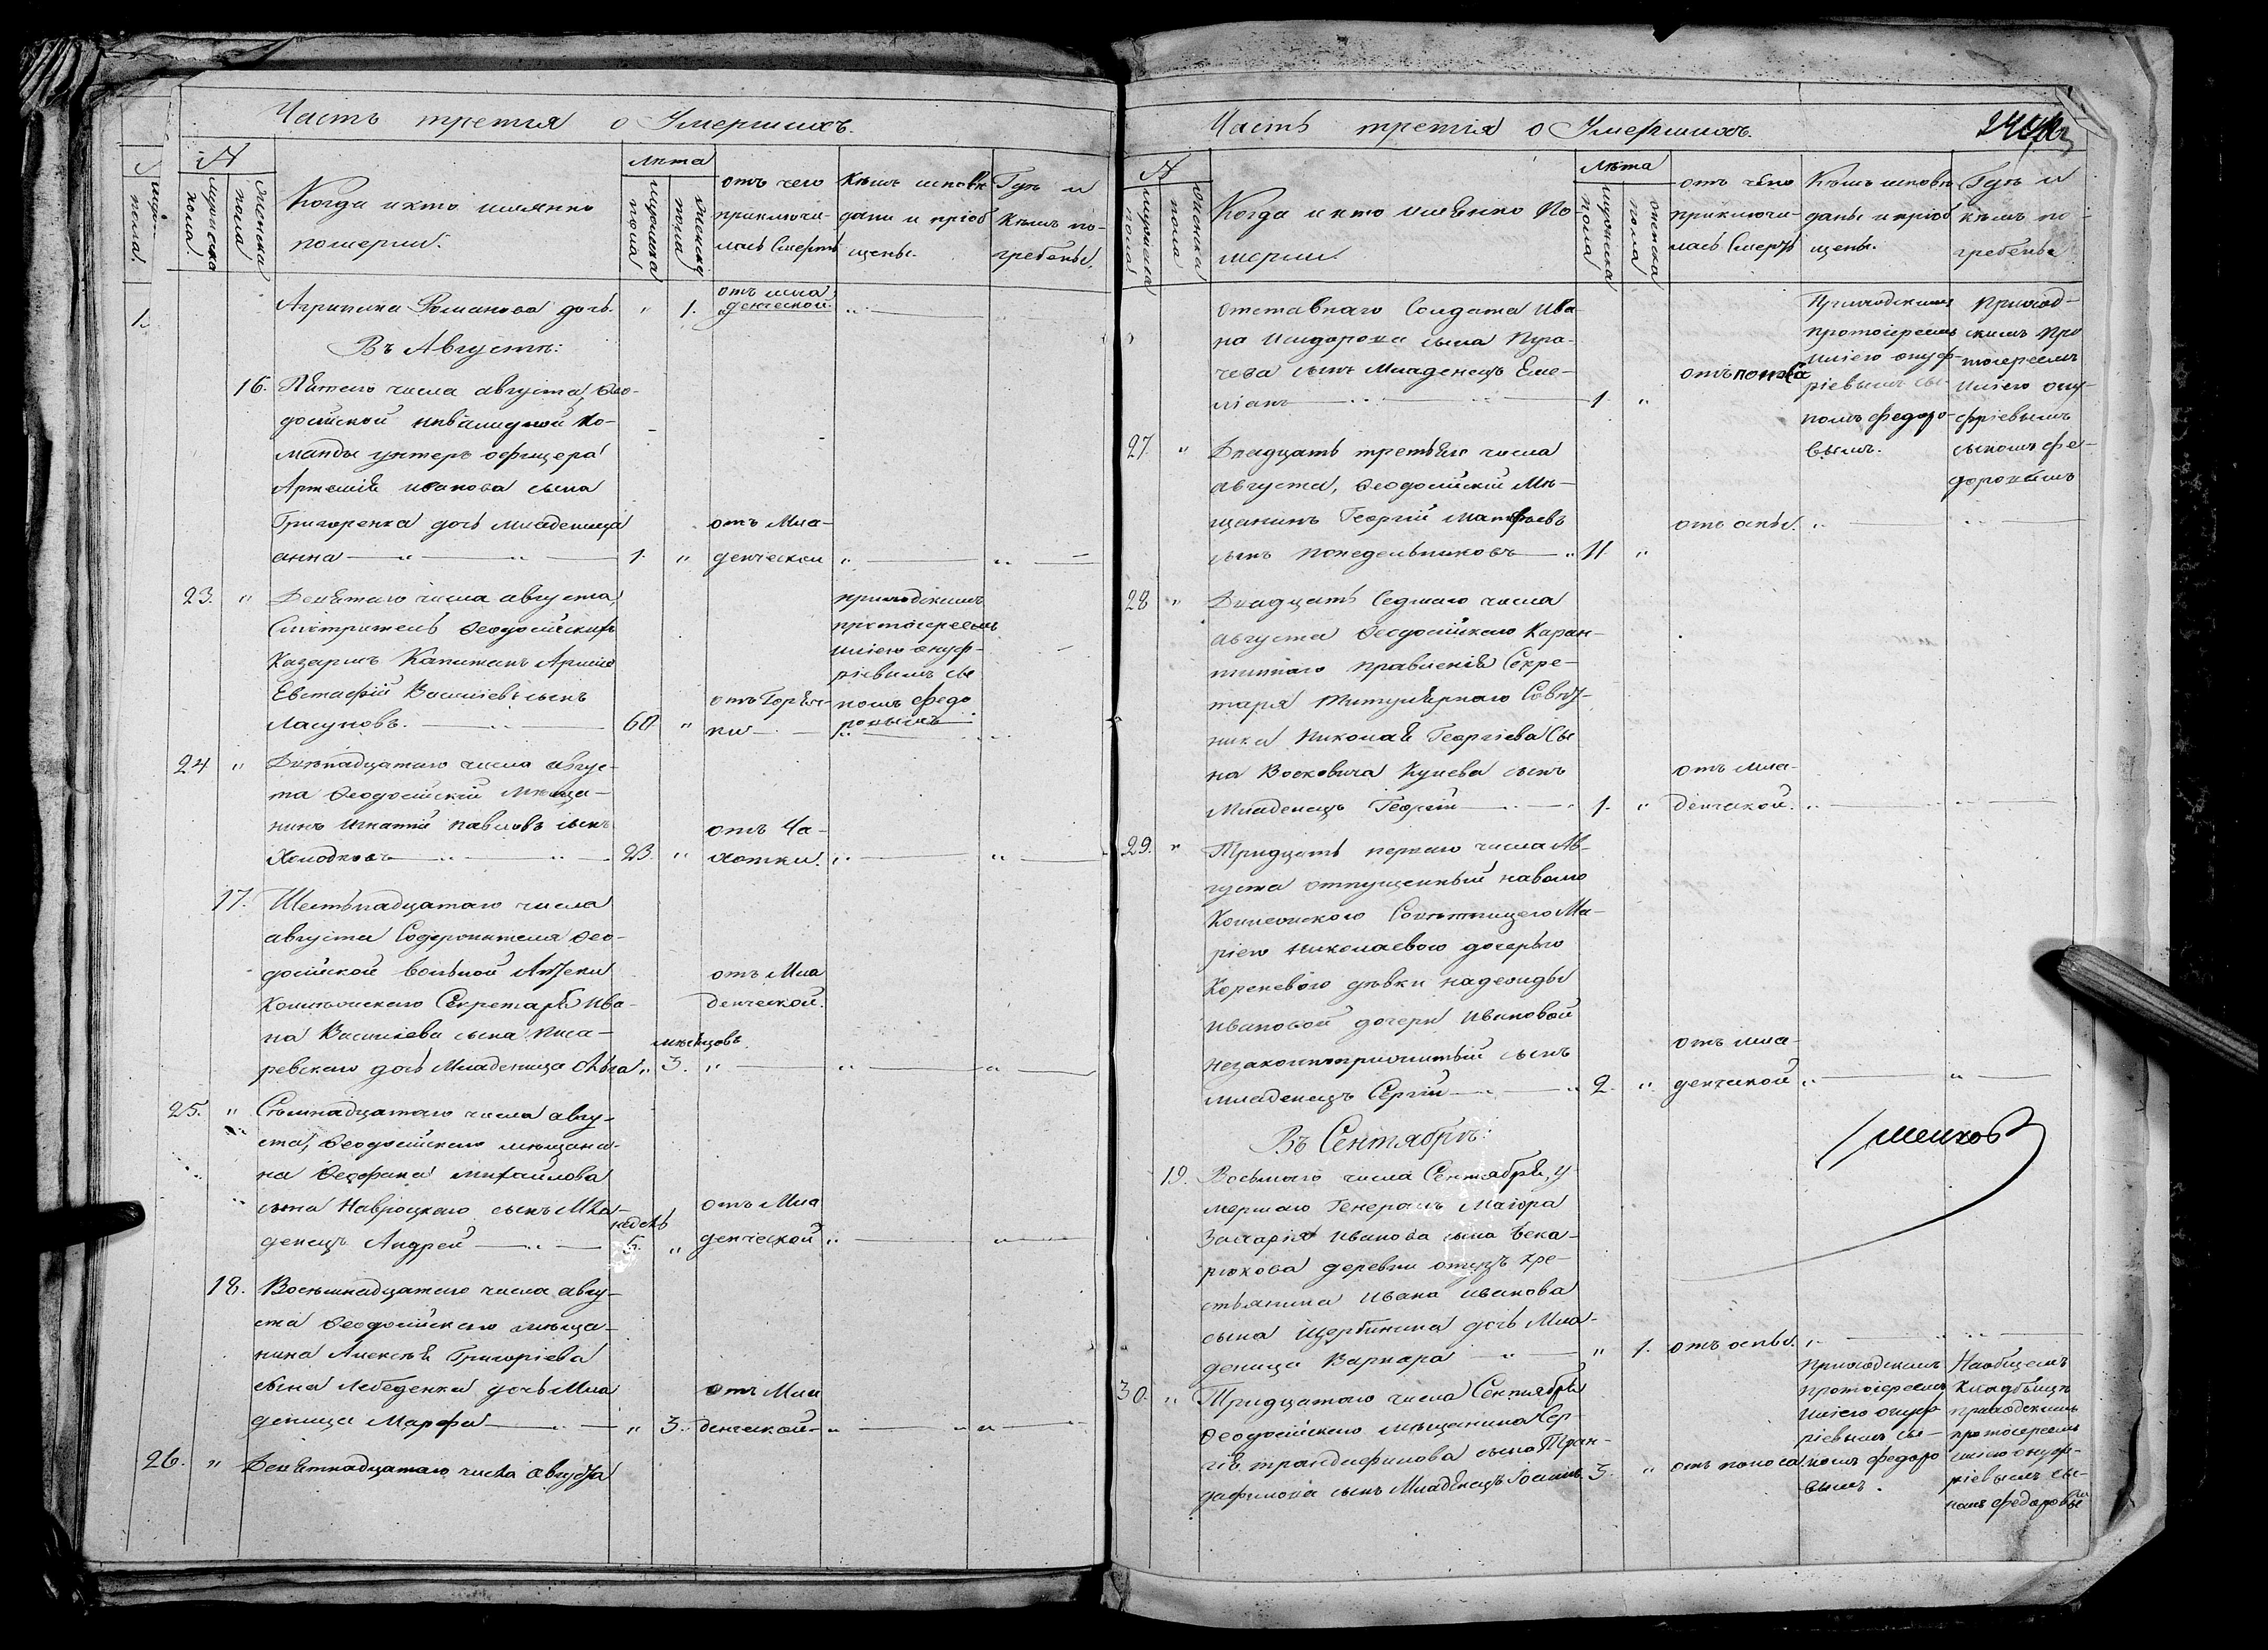 Часть третія о Умершихъ.
№
Мужеска пола.
Женска пола
Когда и кто имянно
померли.
Лѣта
Мужеска пола
Женска пола
отъ чего
приключи-
лась Смерть
Кѣмъ исповѣ
даны и пріоб
щены.
Гдѣ и
Кѣмъ по-
гребены.
Агрипина Романова дочь. " 1. отъ мла
денческой. "
Въ Августѣ:
16. Пятаго числа августа, Ѳео-
досійской инвалидной Ко-
манды унтеръ офицера
Артемія иванова сына
Григоренка дочь младеница отъ Мла-
анна 1. " денчески "
23. " Девятаго числа августа,
Смотритель Ѳеодосійскихъ
Казармъ Капитанъ Арміи
Евстафій Василіевъ сынъ
Ласуновъ. 60 " отъ Горяч-
ки
приходскимъ
протоіереемъ
иліею онуф-
ріевымъ сы
номъ федо
ровымъ
24 " Двенадцатаго числа авгус-
та Ѳеодосійскій мѣща-
нинъ игнатій павловъ сынъ отъ Ча-
Холодковъ 23. " хотки. "
17. Шестьнадцатаго числа
августа Содержателя Ѳео-
досійской вольной Аптеки отъ Мла
Колежскаго Секретаря ива- денческой.
на Василіева сына писа- мѣсяцовъ.
ревскаго дочь Младеница Ольга " 3. "
25. " Сѣмнадцатаго числа авгу-
ста, Ѳеодосійскаго мѣщани-
на Ѳеофана михайлова
сына Навроцкаго сынъ Мла- недель отъ Мла
денецъ Андрей 5. " денческой "
18. Восемнадцатаго числа авгу-
ста Ѳеодосійскаго мѣща-
нина Алексѣя Григоріева
сына Лебеденка дочь Мла отъ Мла
деница Марфа " 3. денческой "
26. " Девятнадцатаго числа августа
Часть третія о Умершихъ.
№
Мужеска пола
Женска пола
Когда и кто имѣнно По-
мерли.
Лѣта
Мужеска пола
Женска пола
отъ чего
приключи-
лась Смерть
Кѣмъ исповѣ
даны и пріоб
щены.
Гдѣ и
кѣмъ по-
гребены
отставнаго Солдата Ива-
на Исидорова сына Пуга-
чева сынъ Младенецъ Еме-
ліанъ 1 " отъ поноса
Приходскимъ
протоіереемъ
иліею онуф-
ріевымъ сы-
номъ федоро-
вымъ.
Приход-
скимъ про
тоіереемъ
иліею ону-
фріевымъ
сыномъ фе-
доровымъ
27. " Двадцать третьяго числа
августа, Ѳеодосійскій Мѣ-
щанинъ Георгій Матфѣевъ
сынъ понедельниковъ 11 " отъ оспы. "
28 " Двадцать Седмаго числа
августа Ѳеодосійскаго Каран-
тиннаго правленія Секре-
таря Титулярнаго Совѣт-
ника Николая Георгіева Сы
на Восковича Кулева сынъ отъ мла-
Младенецъ Георгій 1. " денческой. "
29. " Тридцать перваго числа Ав-
густа отпущенный наволю
Коллежскою Совѣтницею Ма-
ріею николаевою дочерью
Кореневою дѣвки надежды
ивановой дочери ивановой
незаконноприжитый сынъ отъ мла-
младенецъ Сергій 2. " денческой "
Въ Сентябрѣ:
19. Восьмаго числа Сентября, у-
мершаго Генералъ Маіора
Захарія иванова сына Бека-
рюкова деревни отузъ кре-
стьянина Ивана иванова
сына Щербинина дочь Мла-
деница Варвара " 1. отъ оспы. "
30. " Тридцатаго числа Сентября
Ѳеодосійскаго мѣщанина Сер-
гія трандафилова сына Тран-
дафилова сынъ Младенецъ 3. " отъ поноса.
приходскимъ
протоіереемъ
иліею онуф
ріевымъ сы-
номъ федоро
вымъ.
Наобщемъ
Кладбищѣ
приходскимъ
протоіереемъ
иліею онуф-
ріевымъ сы-
номъ федоровы
мъ